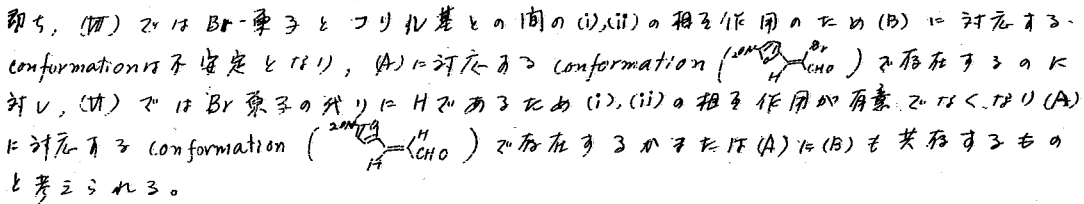 即ち, (Ⅶ) では Br-原子とフリル基との間の (i),(ii) の相互作用のため (B) に対応する.
conformationは不安定となり, (A)に対応する conformation ( H Br CHO ) で存在するのに
対し, (Ⅵ) では Br 原子の代りに H であるため (i),(ii) の相互作用が有意でなくなり (A)
に対応する conformation ( H H CHO ) で存在するかまたは (A) に (B) も共存するもの
と考えられる。